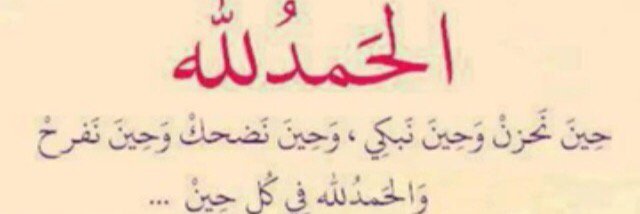 الحَمدُلله
حِينَ نَحزنْ وَحِينَ نَبكِي ، وَحِينَ نَضحكْ وَحِينَ نَفرحْ
وَالحَمدُلله فِي كُل حِينْ ...